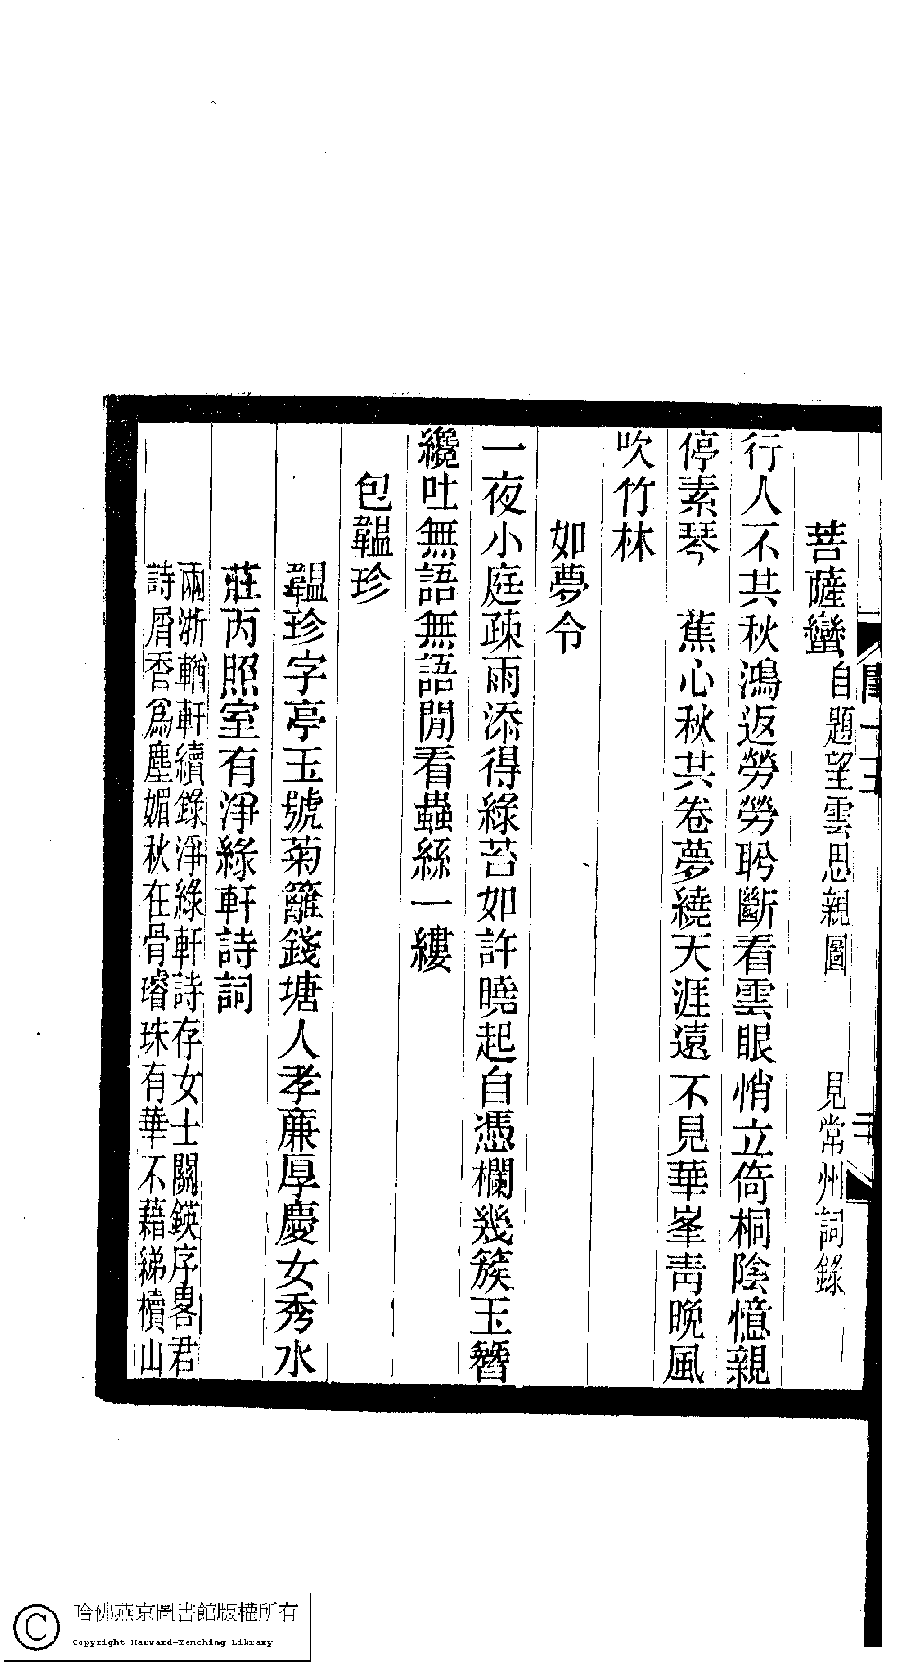 菩薩蠻 自題望雲思親圖 見常州詞錄
行人不共秋鴻返勞勞盻斷看雲眼悄立倚桐陰憶親
停素琴 蕉心秋共卷夢繞天涯遠不見華峯靑晚風
吹竹林
如夢令
一夜小庭疎雨添得綠苔如許曉起自憑欄幾簇玉簪
纔吐無語無語閒看蟲絲一縷
包韞珍
韞珍字亭玉號菊籬錢塘人孝廉厚慶女秀水
莊丙照室有淨綠軒詩詞
兩浙輶軒續錄淨綠軒詩存女士關鍈序畧君
詩屑香爲塵媚秋在骨璿珠有華不藉綈櫝山
哈佛燕京圖書館版權所有
Copyright Harvard-Yenching Library